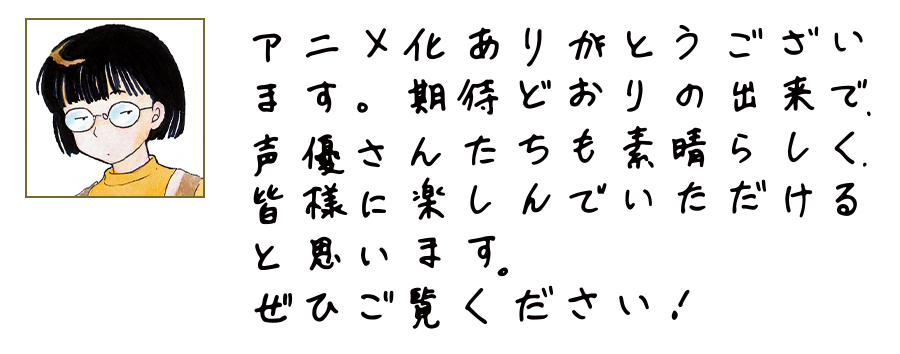 アニメ化ありがとうござい
ます。期待どおりの出来で、
声優さんたちも素晴らしく、
皆様に楽しんでいただける
と思います。
ぜひご覧ください！